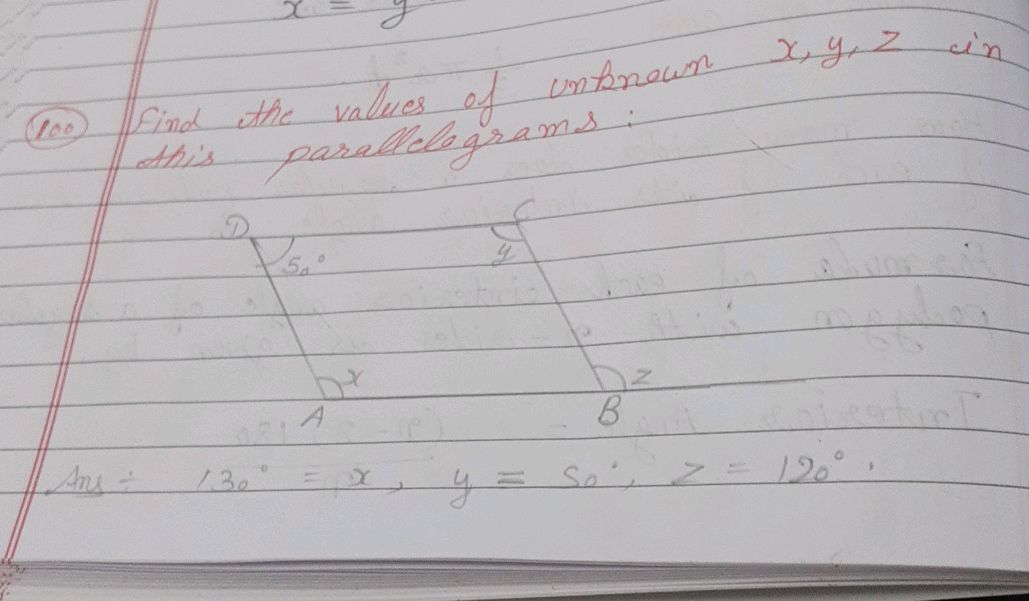 x = y
100 Find the values of unknown x, y, z in
this parallelograms :
D C
50° y
x z
A B
Ans ÷ 130° = x, y = 50°, z = 120°.